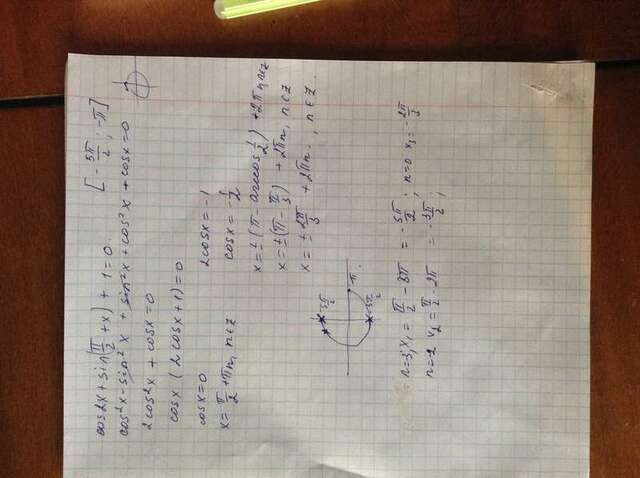 cos2x + sin(π/2 + x) + 1 = 0 [-5π/2; -π]
cos²x - sin²x + sin²x + cos²x + cosx = 0
2cos²x + cosx = 0
cosx (2cosx + 1) = 0
cosx = 0 2cosx = -1
x = π/2 + πn, n∈Z cosx = -1/2
x = ±(π - arccos 1/2) + 2πn, n∈Z
x = ±(π - π/3) + 2πn, n∈Z
x = ± 2π/3 + 2πn, n∈Z.
-π
n=-3, x₁ = π/2 - 3π = -5π/2; n=0 x₃ = -2π/3
n=-2 x₂ = π/2 - 2π = -3π/2;